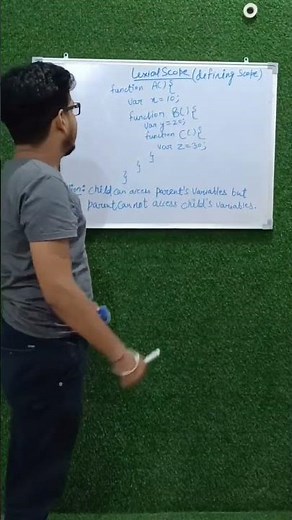 Lexial Scope (defining Scope)
function A() {
var x = 10;
function B() {
var y = 20;
function C() {
var z = 30;
}
}
}
: Child can access parent's variables but
parent cannot access child's variables.